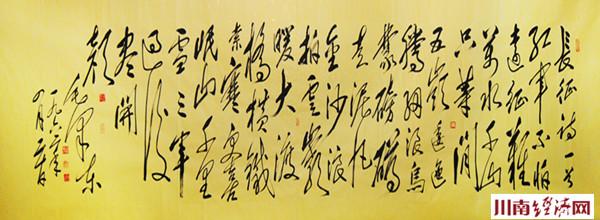 長征詩一首
紅軍不怕
遠征難
萬水千山
只等閒
五嶺逶迤
騰細浪烏
蒙磅礴
走泥丸
金沙浪
拍雲崖
暖大渡
橋橫鐵
索寒更喜
岷山千里
雪三軍
過後
盡開
顏
毛澤東
一九六二年
四月二十日
川南经济网